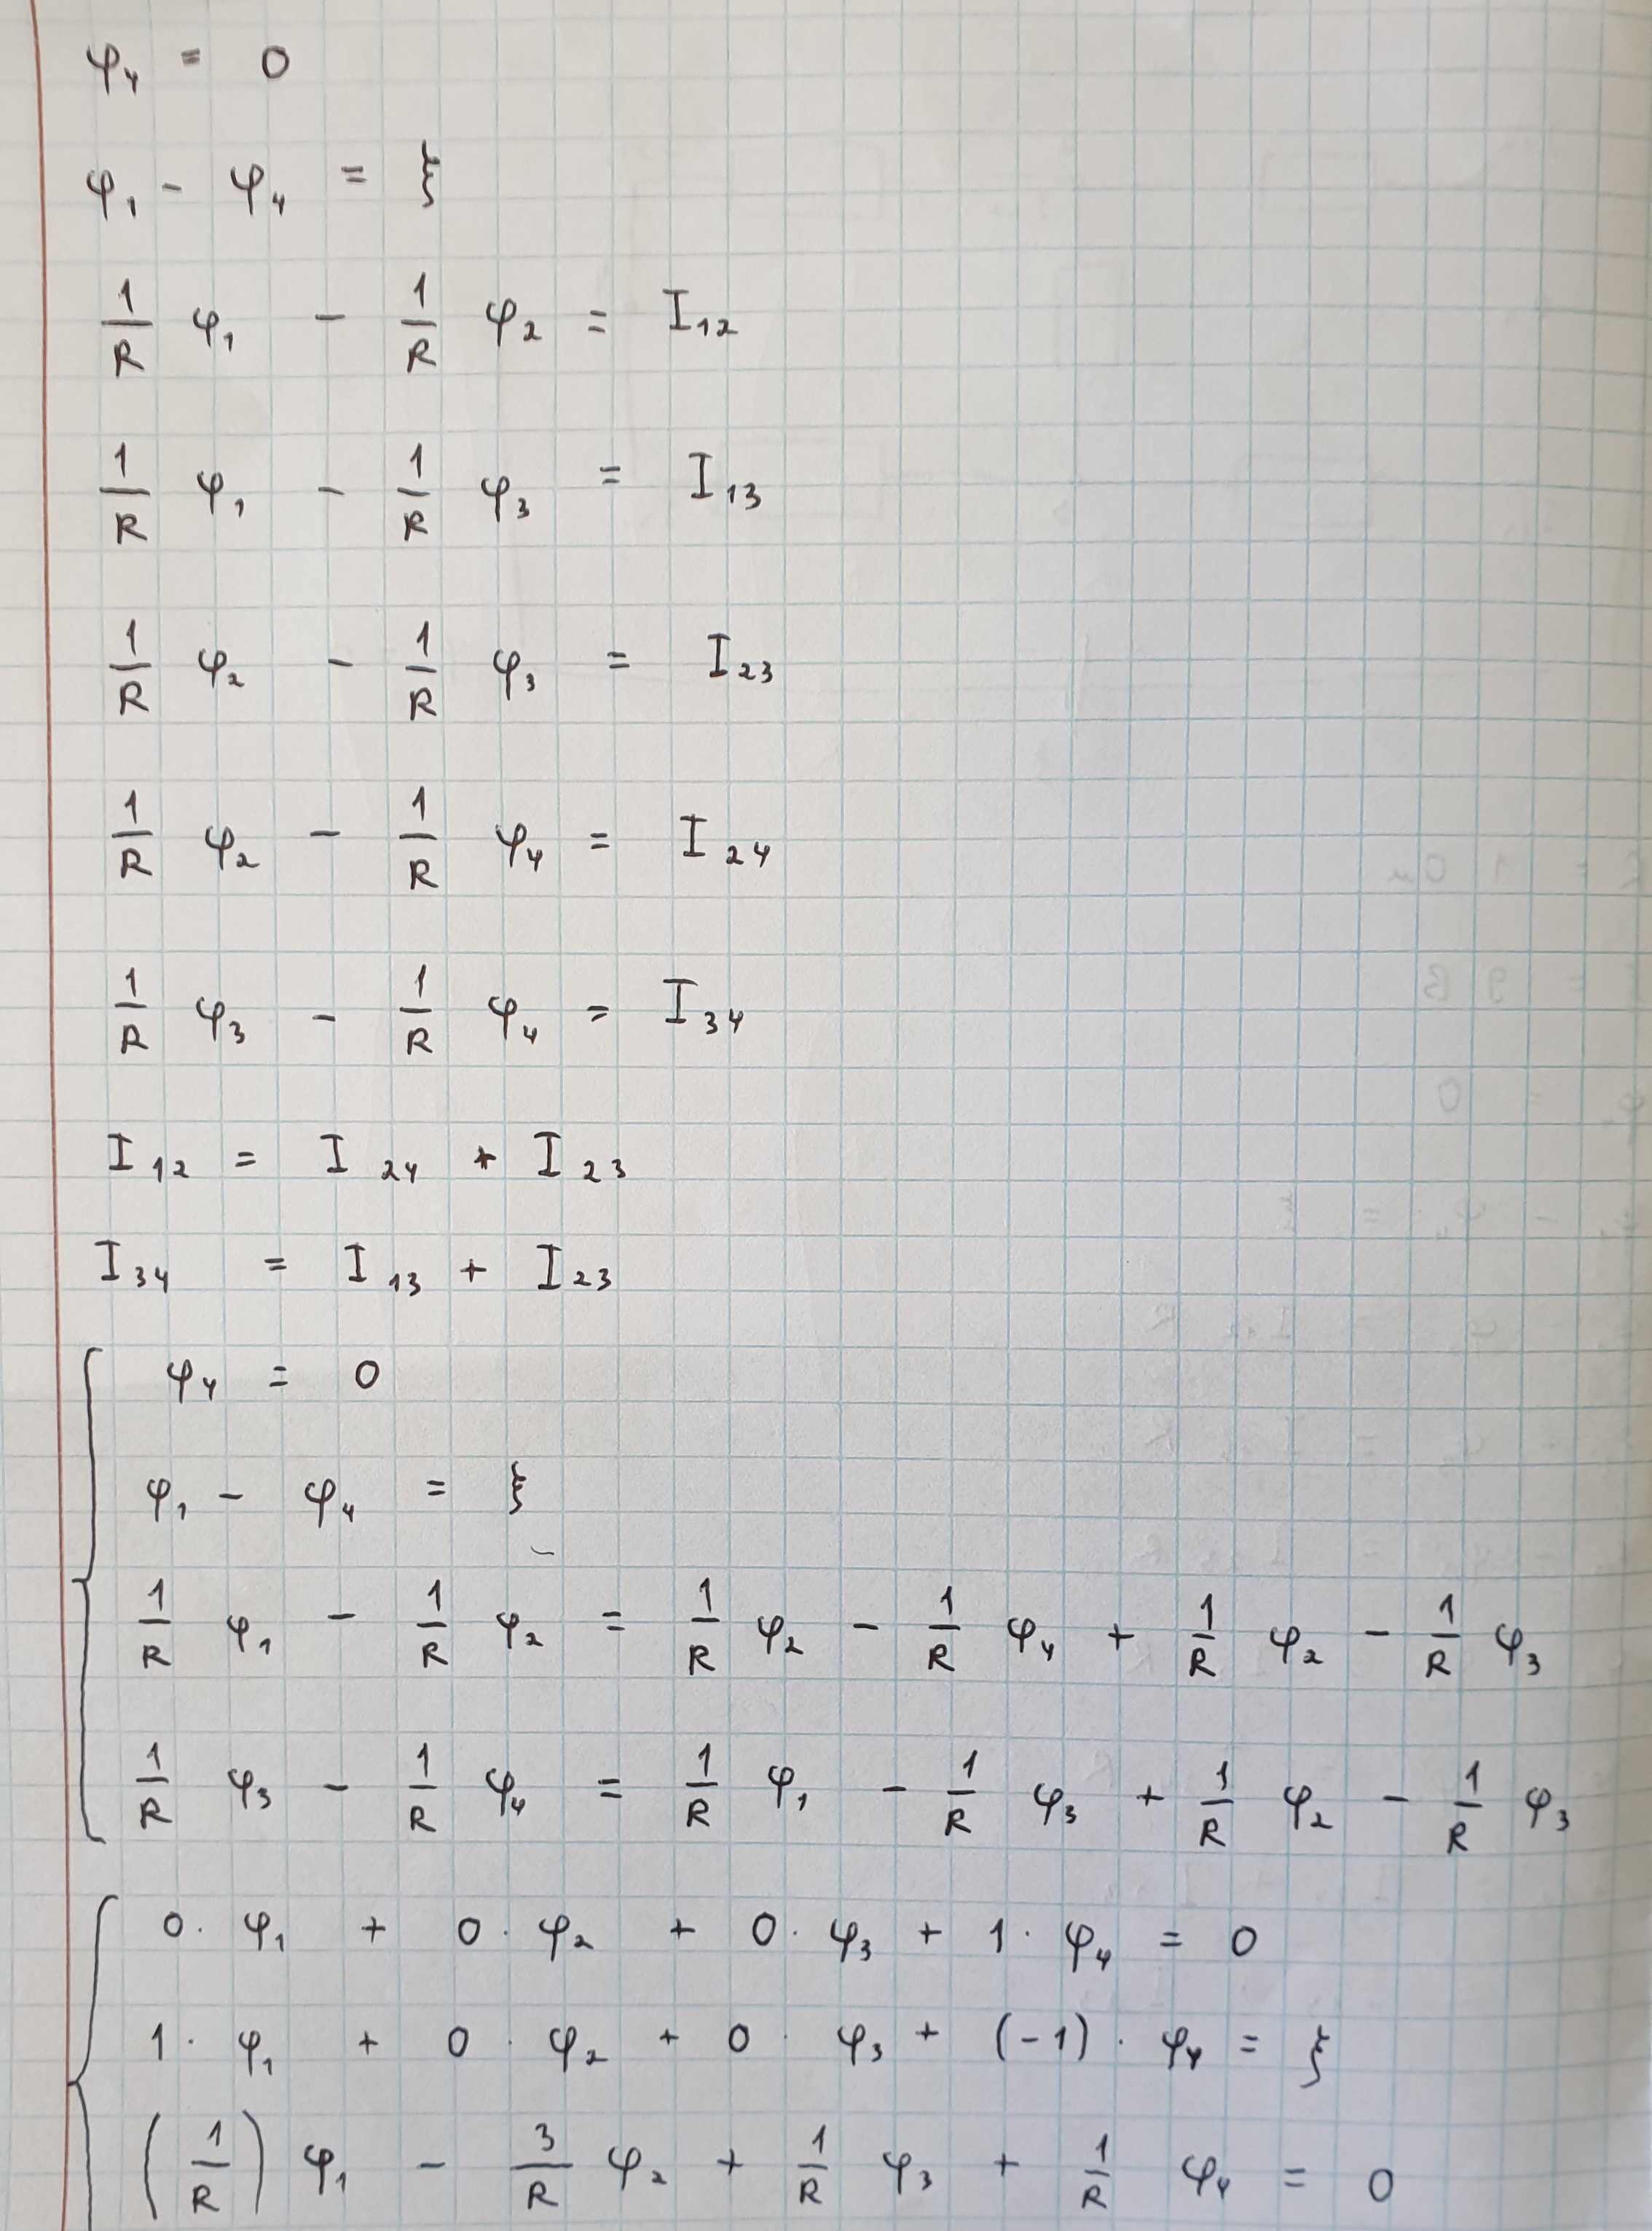 φ₄ = 0
φ₁ - φ₄ = ξ
1/R φ₁ - 1/R φ₂ = I₁₂
1/R φ₁ - 1/R φ₃ = I₁₃
1/R φ₂ - 1/R φ₃ = I₂₃
1/R φ₂ - 1/R φ₄ = I₂₄
1/R φ₃ - 1/R φ₄ = I₃₄
I₁₂ = I₂₄ + I₂₃
I₃₄ = I₁₃ + I₂₃
φ₄ = 0
φ₁ - φ₄ = ξ
1/R φ₁ - 1/R φ₂ = 1/R φ₂ - 1/R φ₄ + 1/R φ₂ - 1/R φ₃
1/R φ₃ - 1/R φ₄ = 1/R φ₁ - 1/R φ₃ + 1/R φ₂ - 1/R φ₃
0· φ₁ + 0· φ₂ + 0· φ₃ + 1· φ₄ = 0
1· φ₁ + 0· φ₂ + 0· φ₃ + (-1)· φ₄ = ξ
(1/R) φ₁ - 3/R φ₂ + 1/R φ₃ + 1/R φ₄ = 0